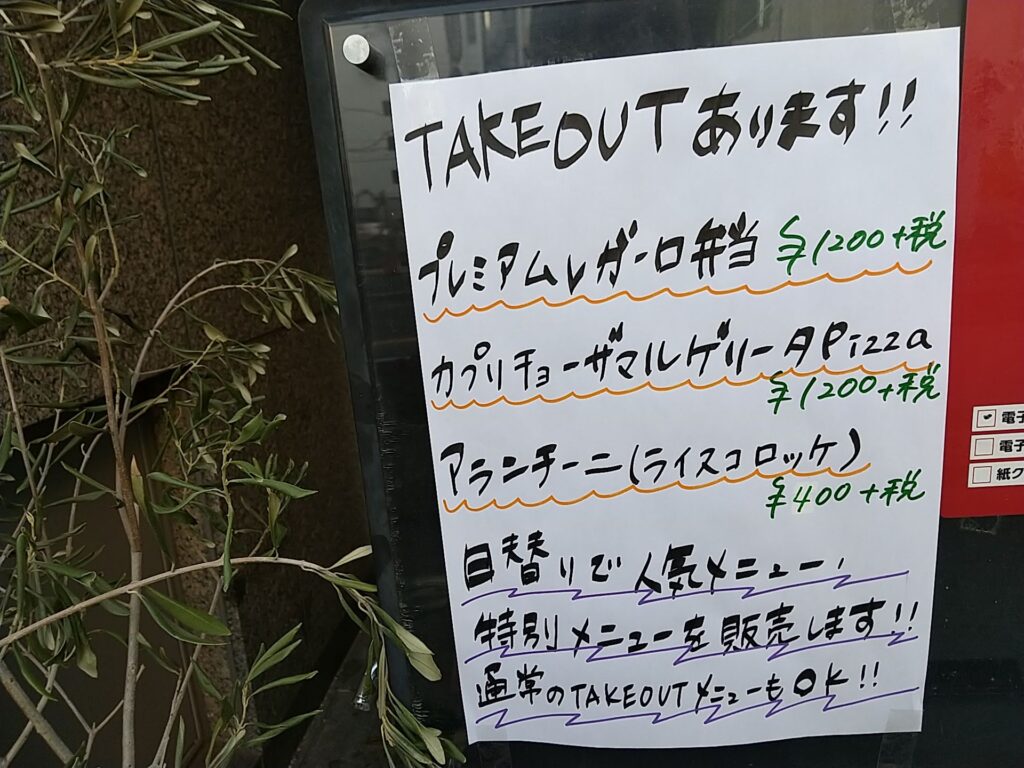 TAKEOUTあります!!
プレミアムレガーロ弁当 ¥1200+税
カプリチョーザマルゲリータPizza
¥1200+税
アランチーニ(ライスコロッケ)
¥400+税
日替りで人気メニュー、
特別メニューを販売します!!
通常のTAKEOUTメニューもOK!!
電子
電子
紙ク